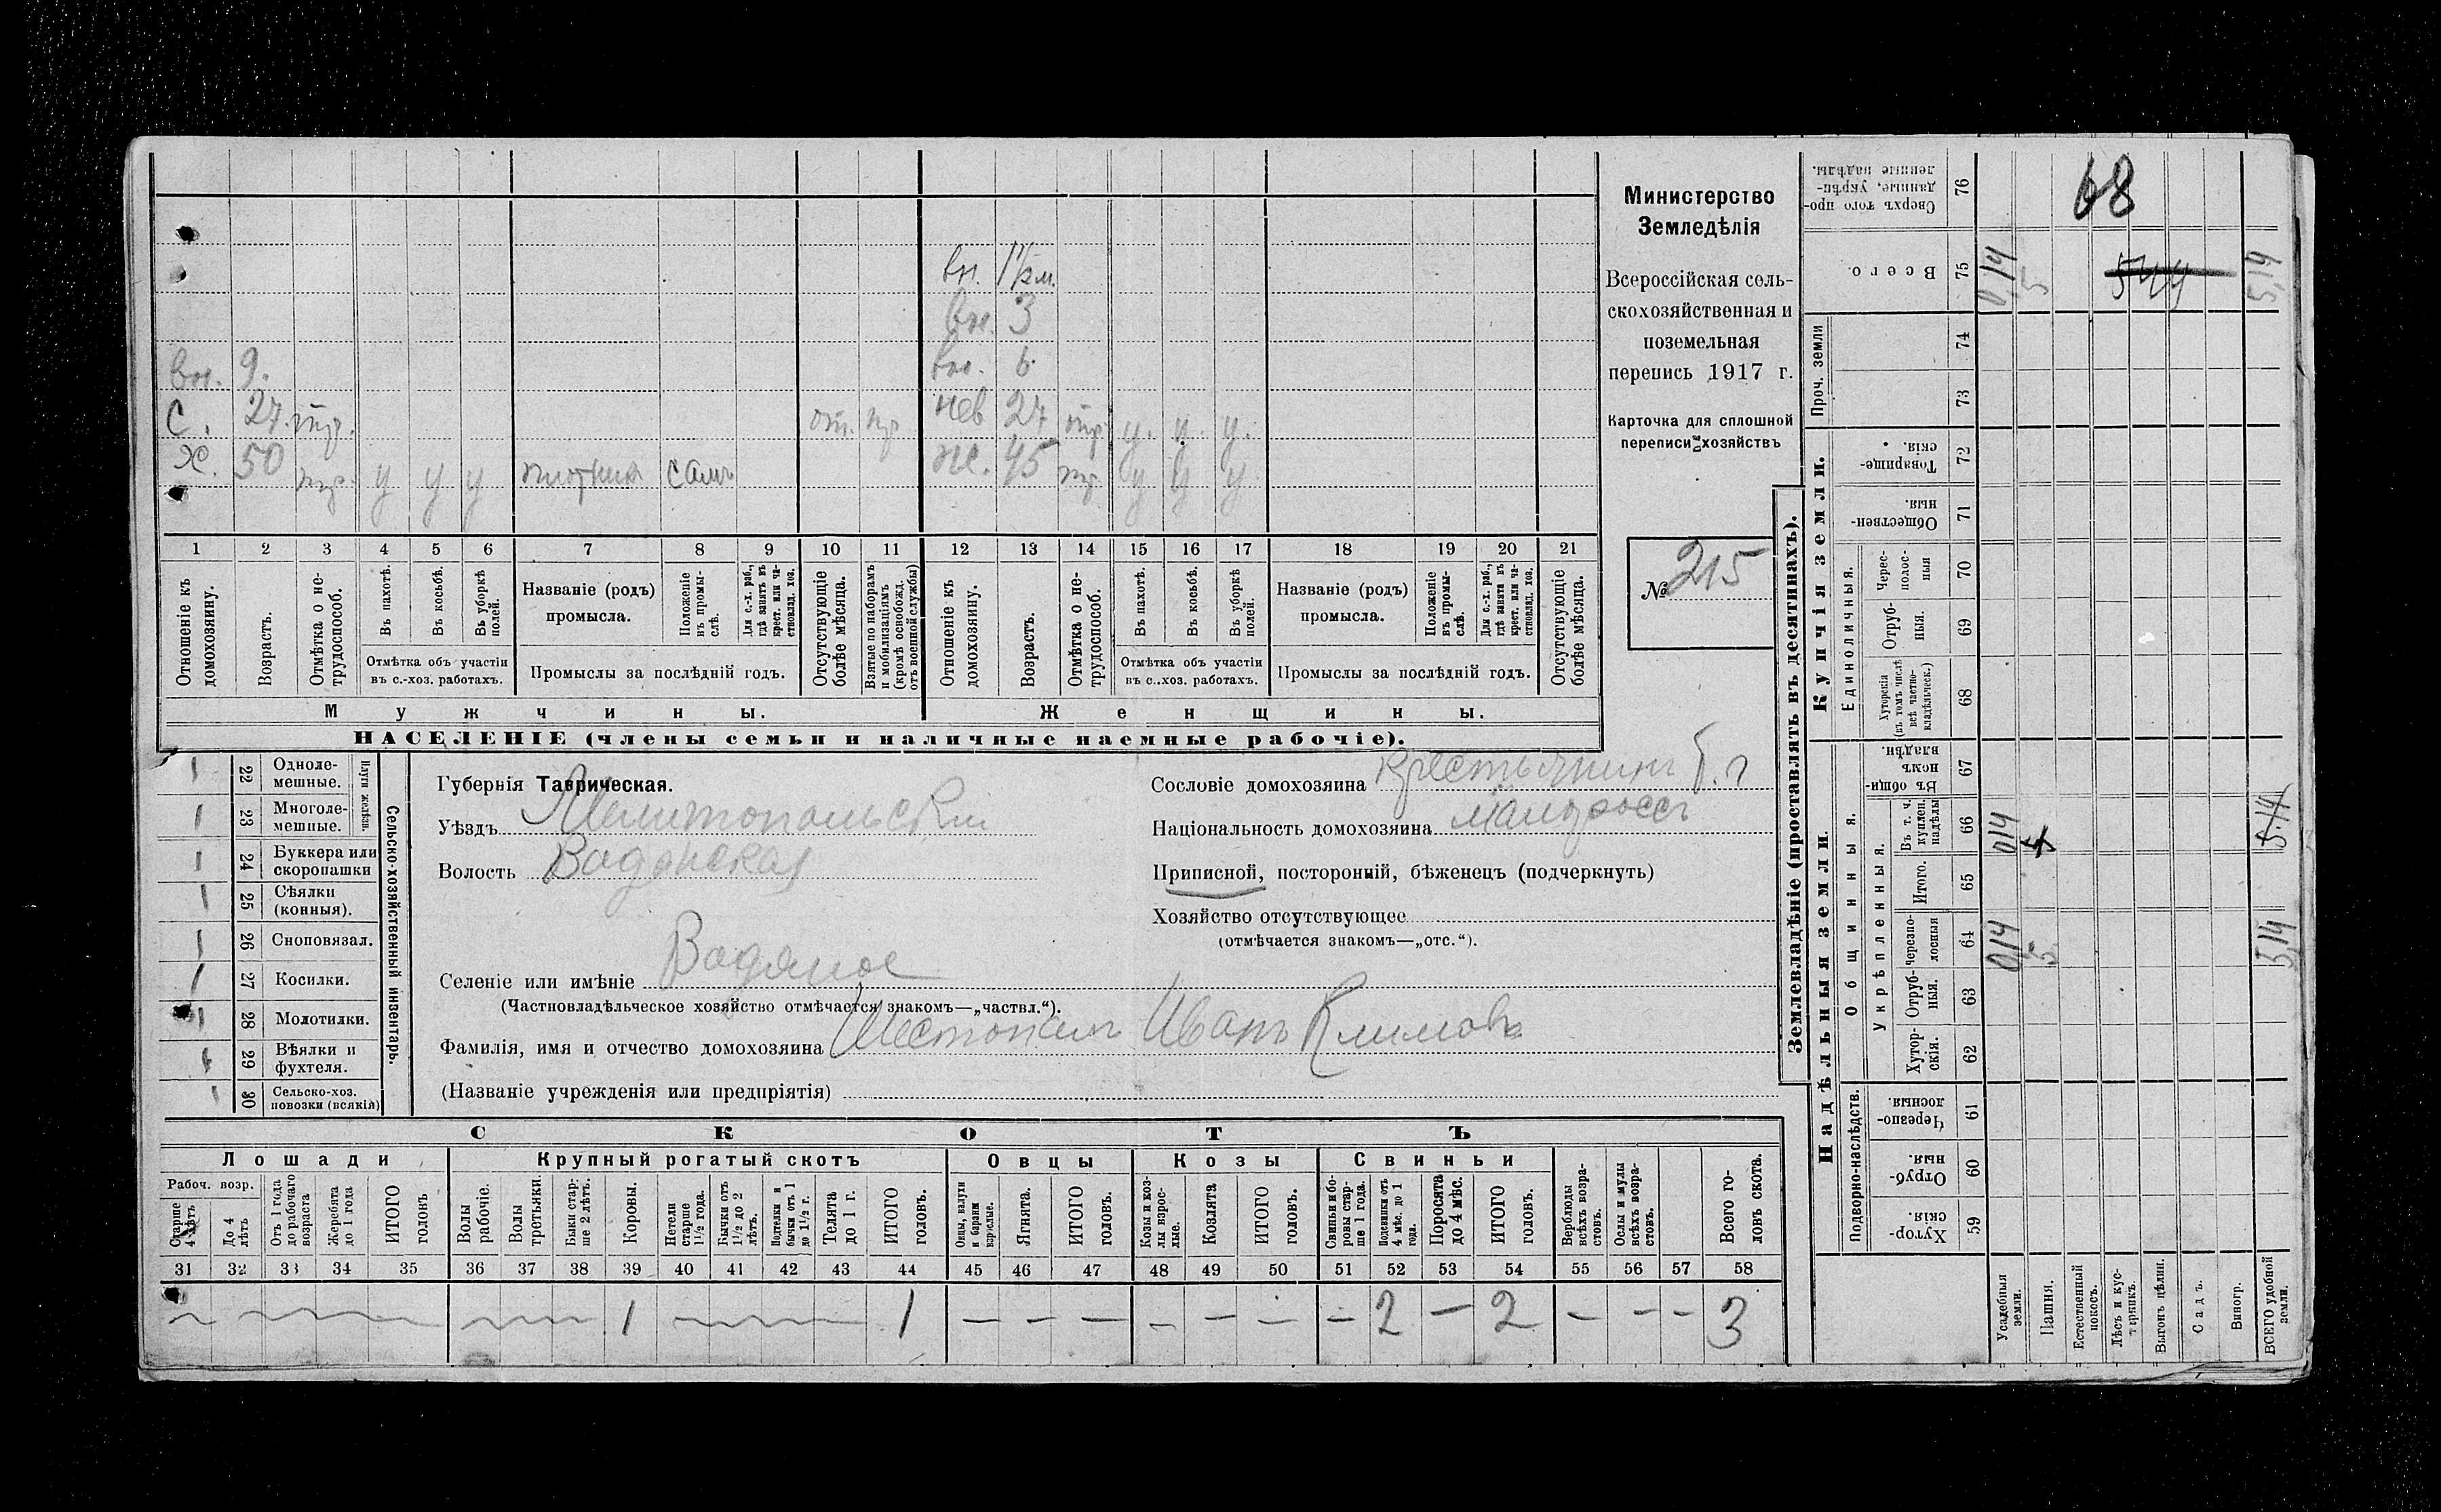 вн. 1 1/2 м.
вн. 3
вн. 9. вн. 6
с. 27. тр. от. тр нев 27 тр. у. у. у.
х. 50 тр. у у у плотник самъ ж. 45 тр. у у у
1 2 3 4 5 6 7 8 9 10 11 12 13 14 15 16 17 18 19 20 21
Отношеніе къ домохозяину.
Возрастъ.
Отмѣтка о нетрудоспособ.
Въ пахотѣ.
Въ косьбѣ.
Въ уборкѣ полей.
Отмѣтка объ участіи
въ с.-хоз. работахъ.
Названіе (родъ)
промысла.
Положеніе въ промыслѣ.
Для с.-х. раб., гдѣ занятъ въ крест. или частновлад. хоз.
Промыслы за послѣдній годъ.
Отсутствующіе болѣе мѣсяца.
Взятые по наборамъ и мобилизаціямъ (кромѣ освобожд. отъ военной службы)
Отношеніе къ домохозяину.
Возрастъ.
Отмѣтка о нетрудоспособ.
Въ пахотѣ.
Въ косьбѣ.
Въ уборкѣ полей.
Отмѣтка объ участіи
въ с..хоз. работахъ.
Названіе (родъ)
промысла.
Положеніе въ промыслѣ.
Для с.-х. раб., гдѣ занята въ крест. или частновлад. хоз.
Промыслы за послѣдній годъ.
Отсутствующіе болѣе мѣсяца.
Мужчины. Женщины.
НАСЕЛЕНІЕ (члены семьи и наличные наемные рабочіе).
Министерство
Земледѣлія
Всероссійская сель-
скохозяйственная и
поземельная
перепись 1917 г.
Карточка для сплошной
переписи хозяйствъ
№ 215
1 22 Одноле-
мешные.
1 23 Многоле-
мешные.
Плуги желѣзн.
1 24 Буккера или
скоропашки
1 25 Сѣялки
(конныя).
1 26 Сноповязал.
1 27 Косилки.
1 28 Молотилки.
1 29 Вѣялки и
фухтеля.
1 30 Сельско-хоз.
повозки (всякія)
Сельско-хозяйственный инвентарь.
Губернія Таврическая.
Уѣздъ Мелитопольскій
Волость Водянская
Селеніе или имѣніе Водяное
(Частновладѣльческое хозяйство отмѣчается знакомъ—„частвл.“).
Фамилія, имя и отчество домохозяина Шестопалъ Иванъ Климовъ
(Названіе учрежденія или предпріятія)
Сословіе домохозяина крестьянинъ
Національность домохозяина малоросъ
Приписной, посторонній, бѣженецъ (подчеркнуть)
Хозяйство отсутствующее
(отмѣчается знакомъ—„отс.“).
СКОТЪ
Лошади Крупный рогатый скотъ Овцы Козы Свиньи
Рабоч. возр.
Старше 4 лѣтъ
До 4 лѣтъ
Отъ 1 года до рабочаго возраста
Жеребята до 1 года
ИТОГО головъ
Волы рабочіе.
Волы третьяки.
Быки старше 2 лѣтъ.
Коровы.
Нетели старше 1½ года.
Бычки отъ 1½ до 2 лѣтъ.
Подтелки и бычки отъ 1 до 1½ г.
Телята до 1 г.
ИТОГО головъ.
Овцы, валухи и бараны взрослые.
Ягнята.
ИТОГО головъ.
Козы и козлы взрослые.
Козлята
ИТОГО головъ.
Свиньи и боровы старше 1 года.
Подсвинки отъ 4 мѣс. до 1 года.
Поросята до 4 мѣс.
ИТОГО головъ.
Верблюды всѣхъ возрастовъ.
Ослы и мулы всѣхъ возрастовъ.
Всего головъ скота.
31 32 33 34 35 36 37 38 39 40 41 42 43 44 45 46 47 48 49 50 51 52 53 54 55 56 57 58
1 1 — — — — — — — 2 — 2 — — — 3
Землевладѣніе (проставлять въ десятинахъ).
Надѣльныя земли Купчія земли. Проч. земли
Подворно-наслѣдств. Общинныя. Единоличныя.
Укрѣпленныя.
Хуторскія. 59
Отрубныя. 60
Черезполосныя. 61
Хуторскія. 62
Отрубныя. 63
Черезполосныя 64 0,14 5 5,14
Итого. 65
Въ т. ч. куплен. надѣлы 66 014 5.14
Въ общинномъ владѣн. 67
Хуторскія (въ томъ числѣ всѣ частновладѣльческ.) 68
Отрубныя. 69
Черезполосныя 70
Общественныя. 71
Товарищескія. 72
73
74
Всего. 75 0,14 5 5,14
Сверхъ того проданные, укрѣпленные надѣлы. 76
68
Усадебныя земли.
Пашня.
Естественный покосъ.
Лѣсъ и кустарникъ.
Выгонъ цѣлин.
Садъ.
Виногр.
ВСЕГО удобной земли.